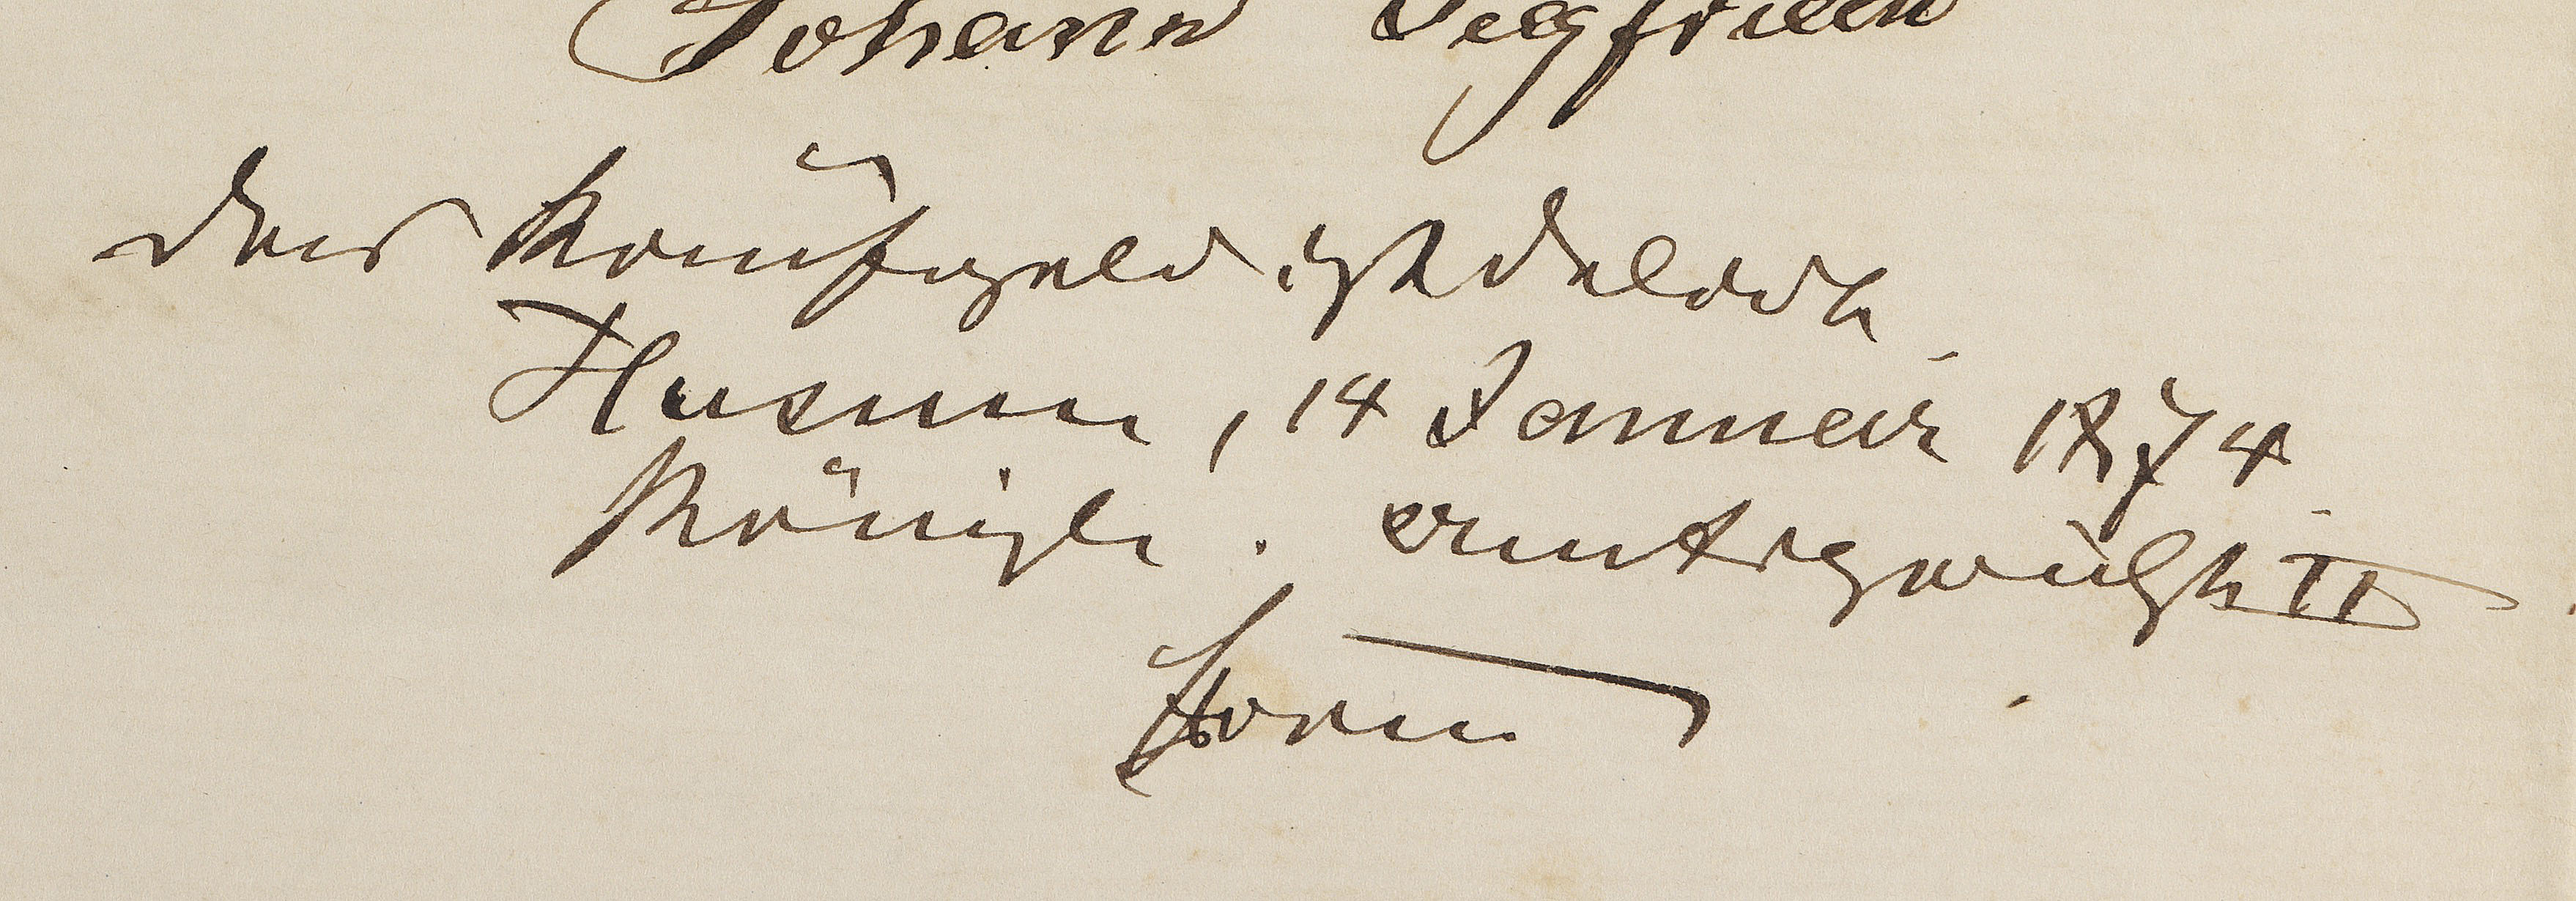 Johann Siegfried
das Kaufgeld ist delirt
Husum, 14 Januar 1874
Königl. Amtsgericht II
Storm